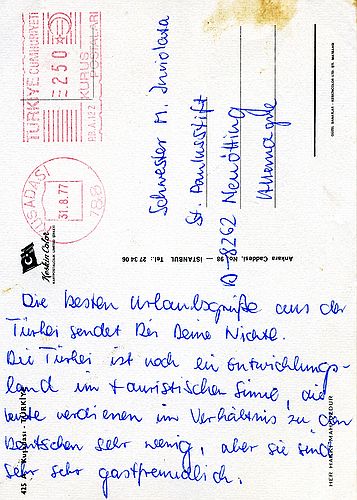 Die besten Urlaubsgrüße aus der
Türkei sendet Dir Deine Nichte.
Die Türkei ist noch ein Entwicklungs-
land im touristischen Sinne, die
Leute verdienen im Verhältnis zu den
Deutschen sehr wenig, aber sie sind
sehr sehr gastfreundlich.
Schwester M. Inviolata
St. Paulusstift
D-8262 Neuötting
Allemagne
TÜRKİYE CUMHURİYETİ
250
KURUŞ
POSTALARI
KUŞADASI
31.8.77
Keskin Color
Ankara Caddesi, No. 98 — İSTANBUL Tel.: 27 34 06
HER HAKKI MAHFUZDUR